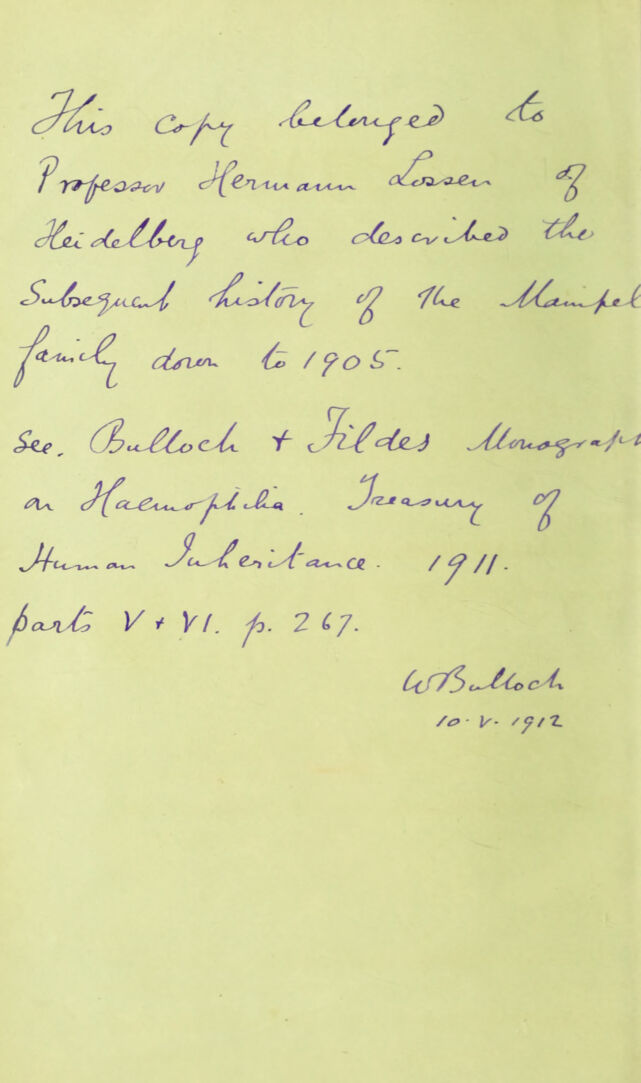 This copy belonged to
Professor Hermann Lossen of
Heidelberg who described the
Subsequent history of the Mampel
family down to 1905.
See. Bulloch + Fildes Monograph
on Haemophilia. Treasury of
Human Inheritance. 1911.
parts V + VI. p. 267.
WBulloch
10. V. 1912